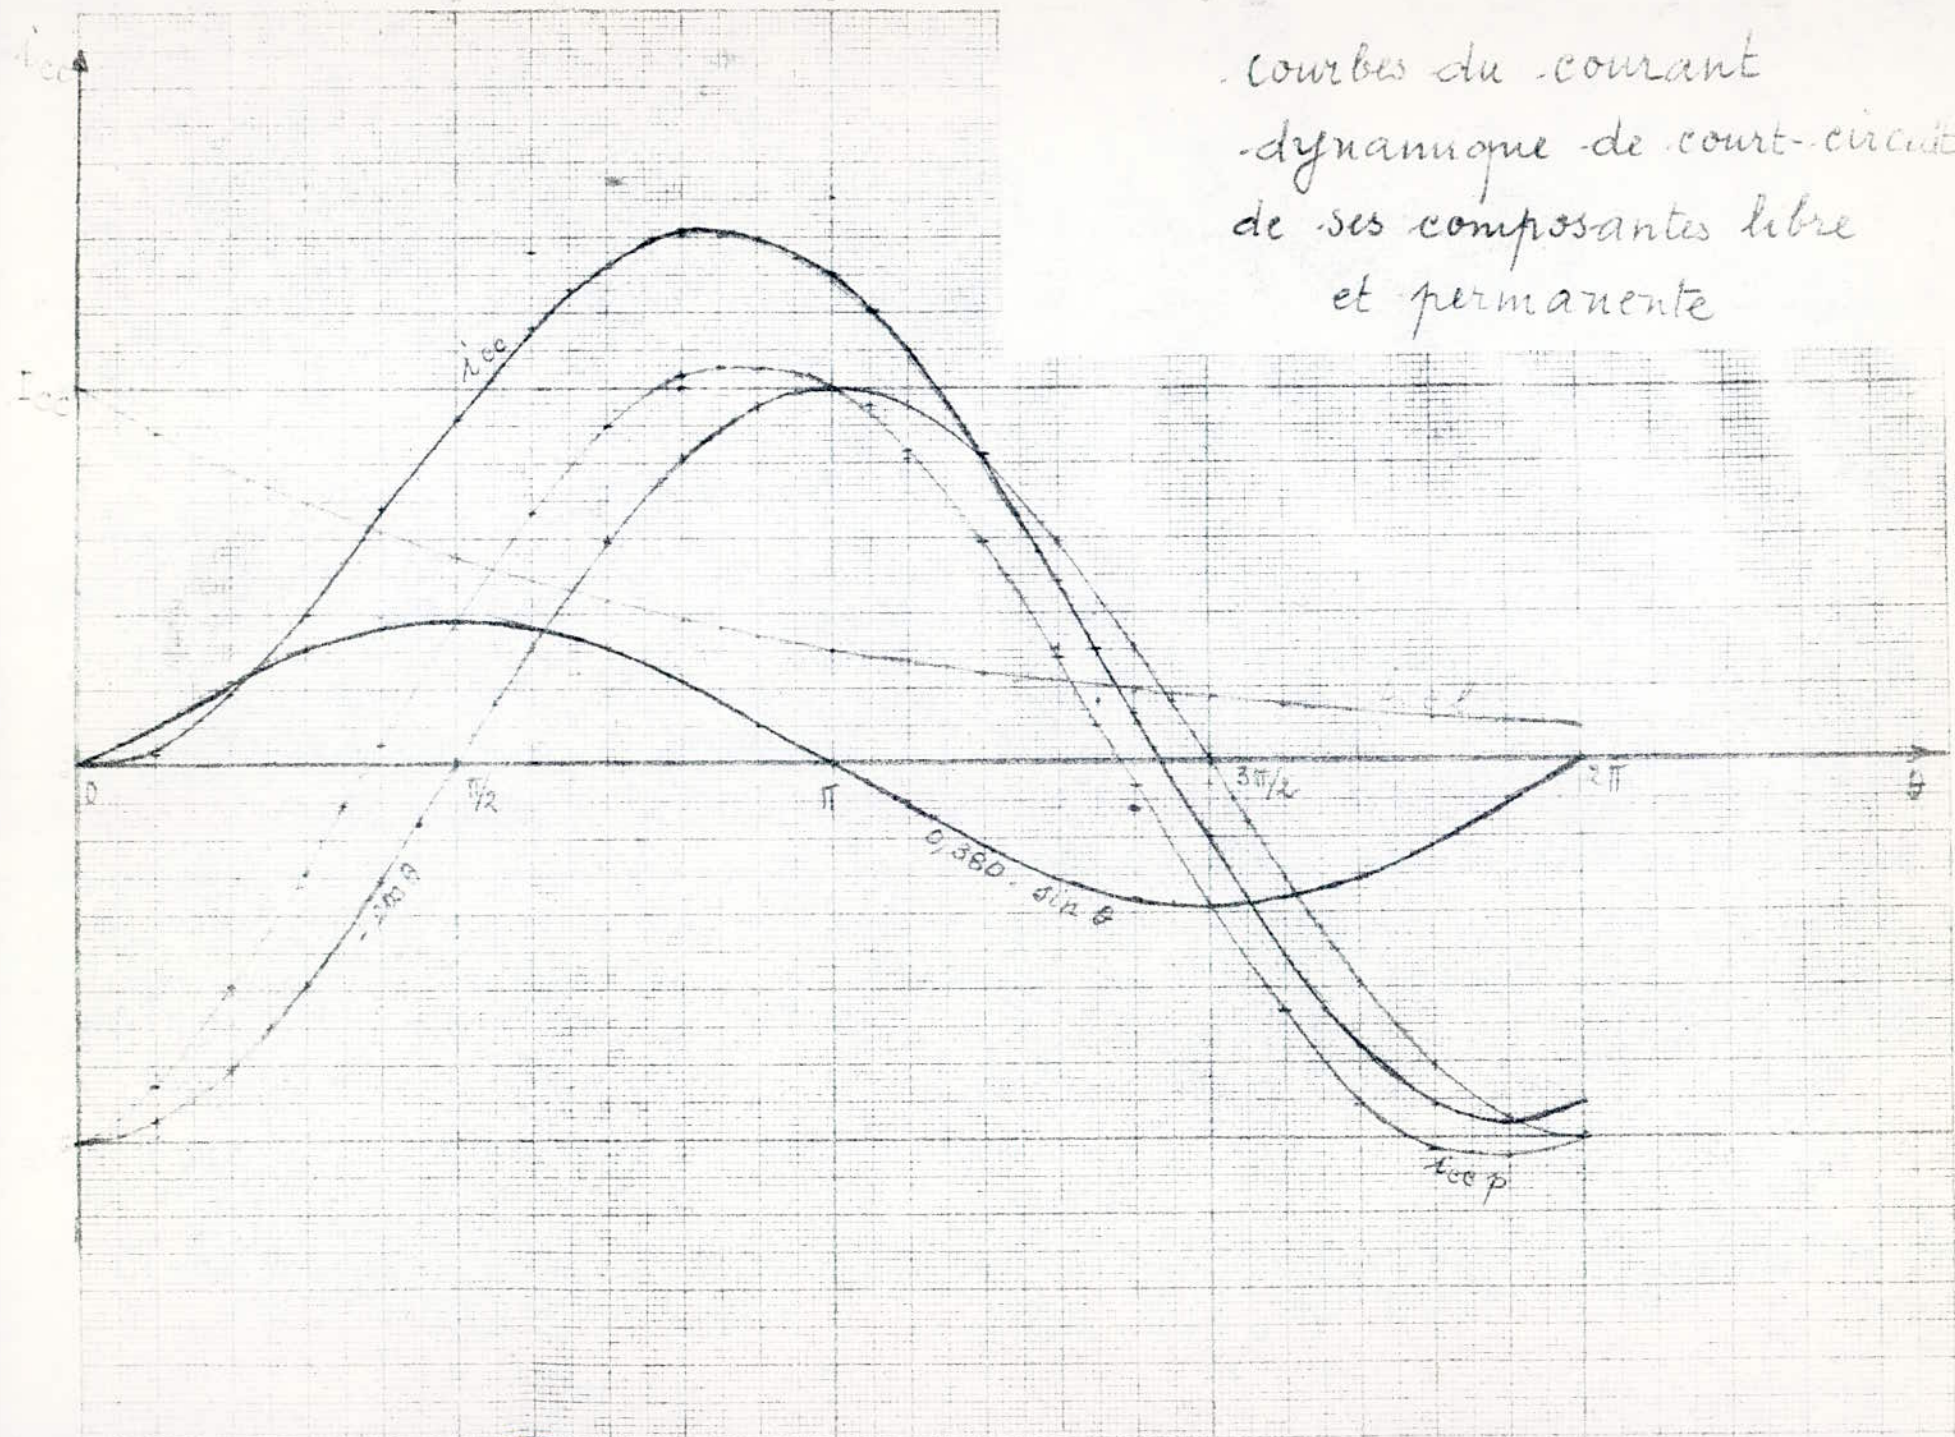 courbes du courant
dynamique de court-circuit
de ses composantes libre
et permanente
icc
icc
Icc
0
π/2
π
3π/2
2π
θ
0,380 . sin θ
icc p